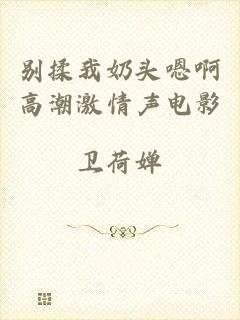 别揉我奶头嗯啊
高潮激情声电影
卫荷婵